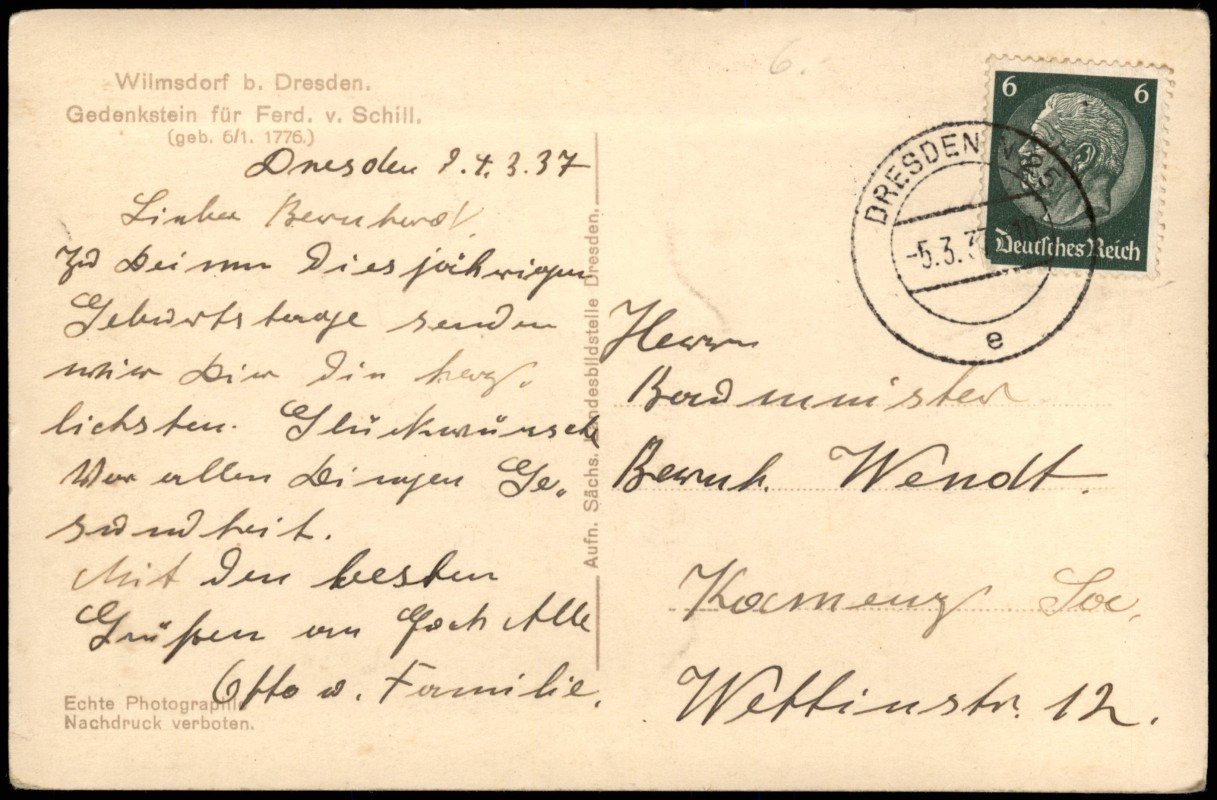 Wilmsdorf b. Dresden.
Gedenkstein für Ferd. v. Schill.
(geb. 6/1. 1776.)
Dresden 4.3.37
Lieber Bernhard!
Zu Deinem diesjährigen
Geburtstage senden
wir Dir die herz-
lichsten Glückwünsche
Vor allen Dingen Ge-
sundheit.
Mit den besten
Grüßen an Euch Alle
Otto u. Familie.
Echte Photographie
Nachdruck verboten.
Aufn. Sächs. Landesbildstelle Dresden.
6.
6 6
Deutsches Reich
DRESDEN
-5.3.37
e
Herrn
Badminister
Bernh. Wendt.
Kamenz Sa.
Wettinstr. 12.